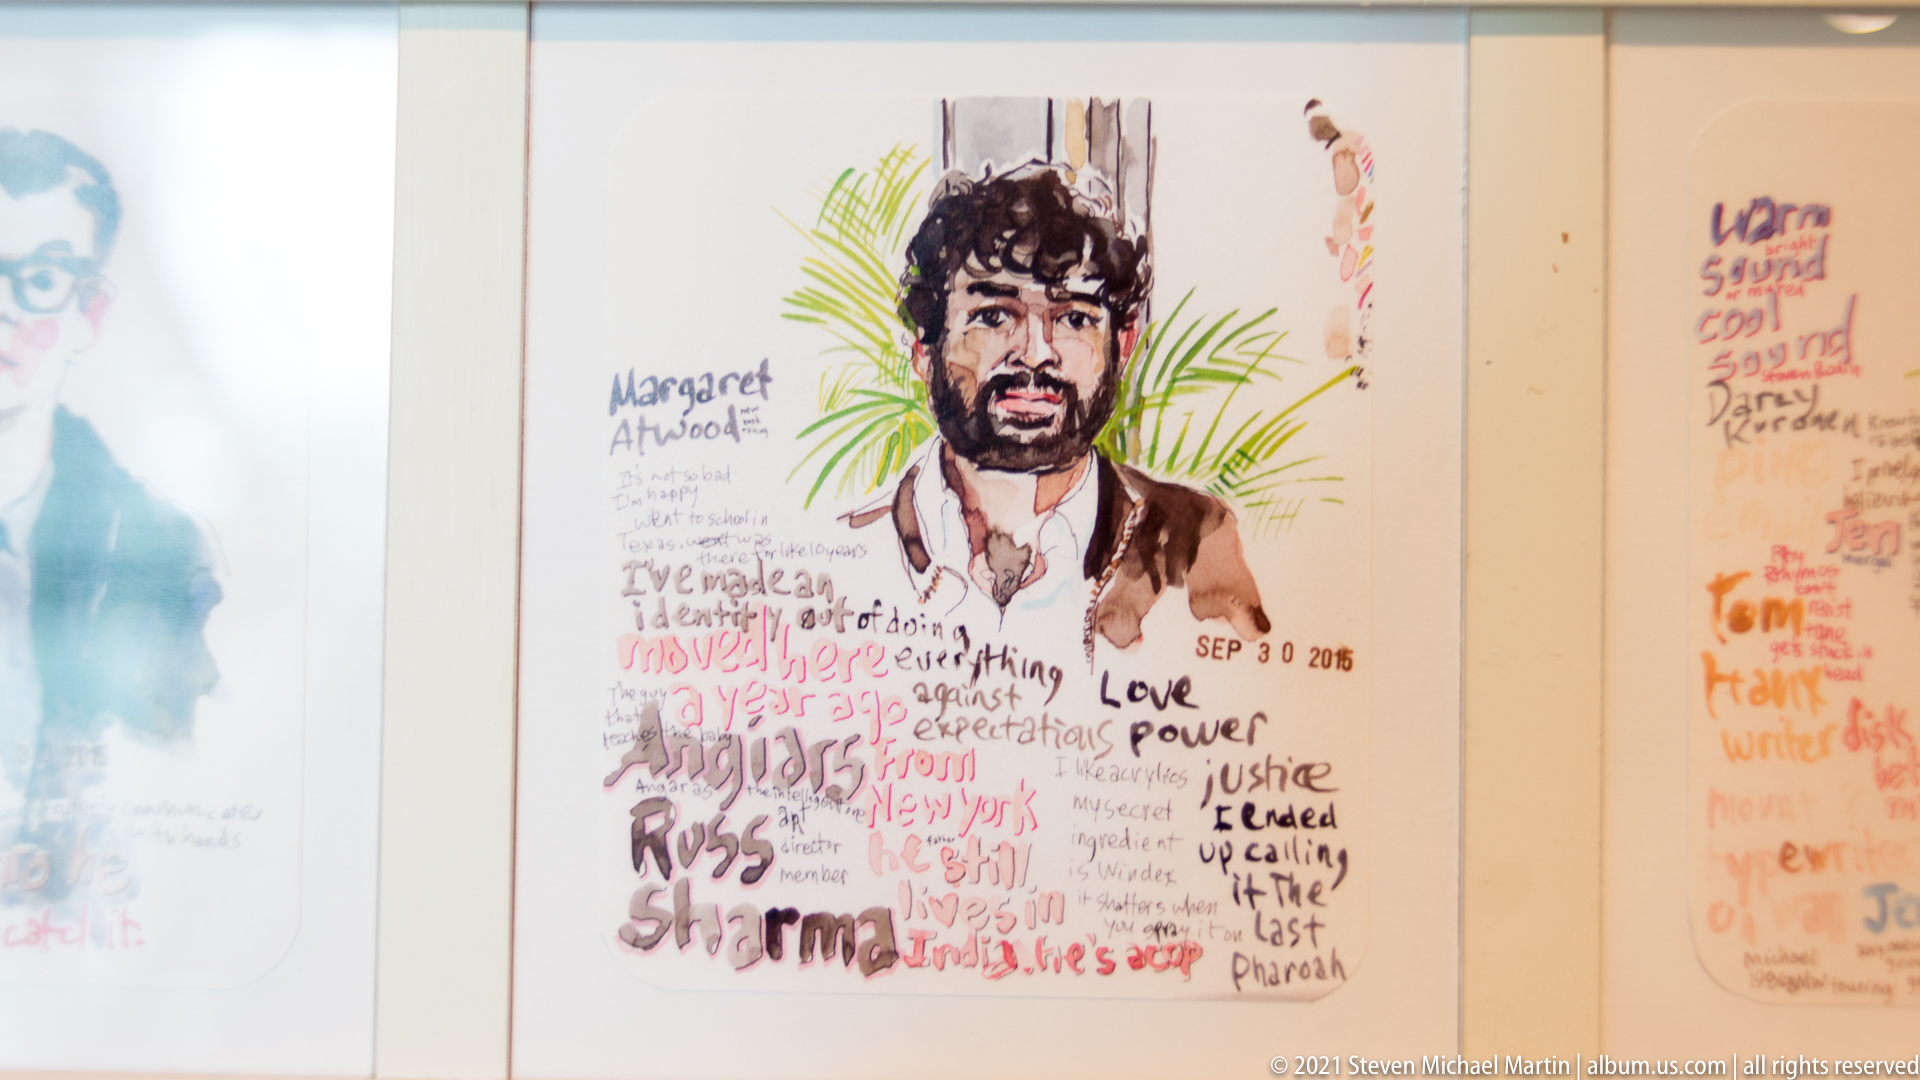 Margaret
Atwood new
book
It's not so bad
I'm happy
went to school in
Texas. went was
there for like 10 years
I've made an
identity out of doing
everything
against
expectations
moved here
a year ago
The guy
that
teaches the baby
Angiars
Angaras the intelligent one
Russ
art
director
member
Sharma
From
New York
he father still
lives in
India. he's a cop
SEP 3 0 2015
Love
power
justice
I ended
up calling
it The
Last
Pharoah
I like acrylics
my secret
ingredient
is Windex
it shatters when
you spray it on
communicates
with hands
catch it.
2015
warm
bright
sound
or muted
cool
sound
Darcy
Kuronen
Jen
Tom
Hanx
writer
resist
gets stuck in
head
disk
typewriter
Michael
touring
© 2021 Steven Michael Martin | album.us.com | all rights reserved